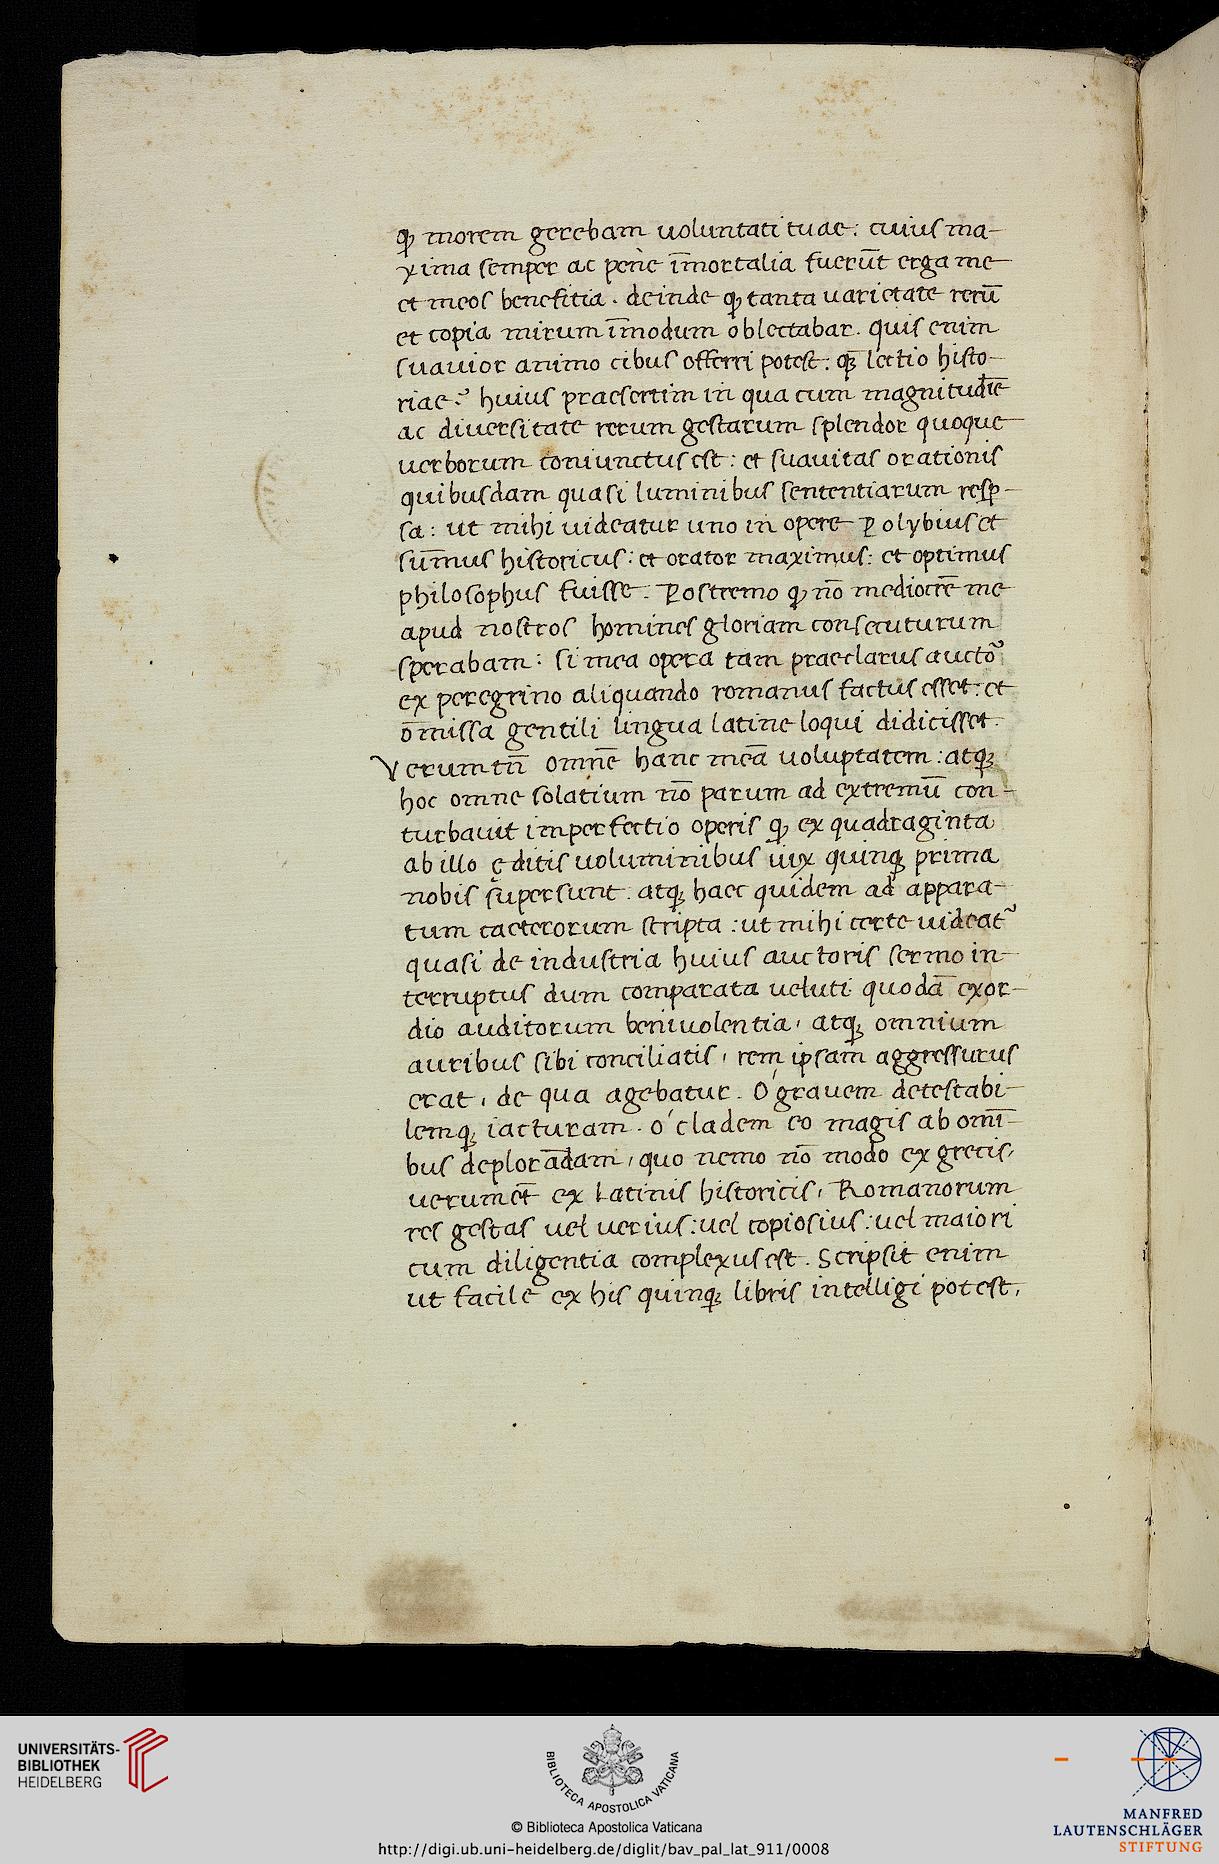 ꝙ morem gerebam uoluntati tuae: cuius ma-
xima semper ac pene īmortalia fuerūt erga me
et meos benefitia. deinde ꝙ tanta uarietate rerū
et copia mirum īmodum oblectabar. quis enim
suauior animo cibus offerri potest: quā lectio histo-
riae? huius praesertim in qua cum magnitudīe
ac diuersitate rerum gestarum splendor quoque
uerborum coniunctus est: et suauitas orationis
quibusdam quasi luminibus sententiarum resp̄-
sa: ut mihi uideatur uno in opere Polybius et
sūmus historicus: et orator maximus: et optimus
philosophus fuisse. Postremo ꝙ nō mediocrē me
apud nostros homines gloriam consecuturum
sperabam: si mea opera tam praeclarus auctor̃
ex peregrino aliquando romanus factus esset: et
omissa gentili lingua latine loqui didicisset.
Verumtn̄ omnē hanc meā uoluptatem: atq;
hoc omne solatium nō parum ad extremū con-
turbauit imperfectio operis ꝙ ex quadraginta
ab illo ęditis uoluminibus uix quinq; prima
nobis supersunt. atq; haec quidem ad appara-
tum caeterorum scripta: ut mihi certe uideat̃
quasi de industria huius auctoris sermo in-
terruptus dum comparata ueluti quodā exor-
dio auditorum beniuolentia, atq; omnium
auribus sibi conciliatis, rem ipsam aggressurus
erat, de qua agebatur. O grauem detestabi-
lemq; iacturam. o cladem eo magis ab omī-
bus deplorādam, quo nemo nō modo ex grecis,
uerumet̄ ex Latinis historicis, Romanorum
res gestas uel uerius: uel copiosius: uel maiori
cum diligentia complexus est. Scripsit enim
ut facile ex his quinq; libris intelligi potest,
UNIVERSITÄTS-
BIBLIOTHEK
HEIDELBERG
BIBLIOTECA APOSTOLICA VATICANA
© Biblioteca Apostolica Vaticana
http://digi.ub.uni-heidelberg.de/diglit/bav_pal_lat_911/0008
MANFRED
LAUTENSCHLÄGER
STIFTUNG